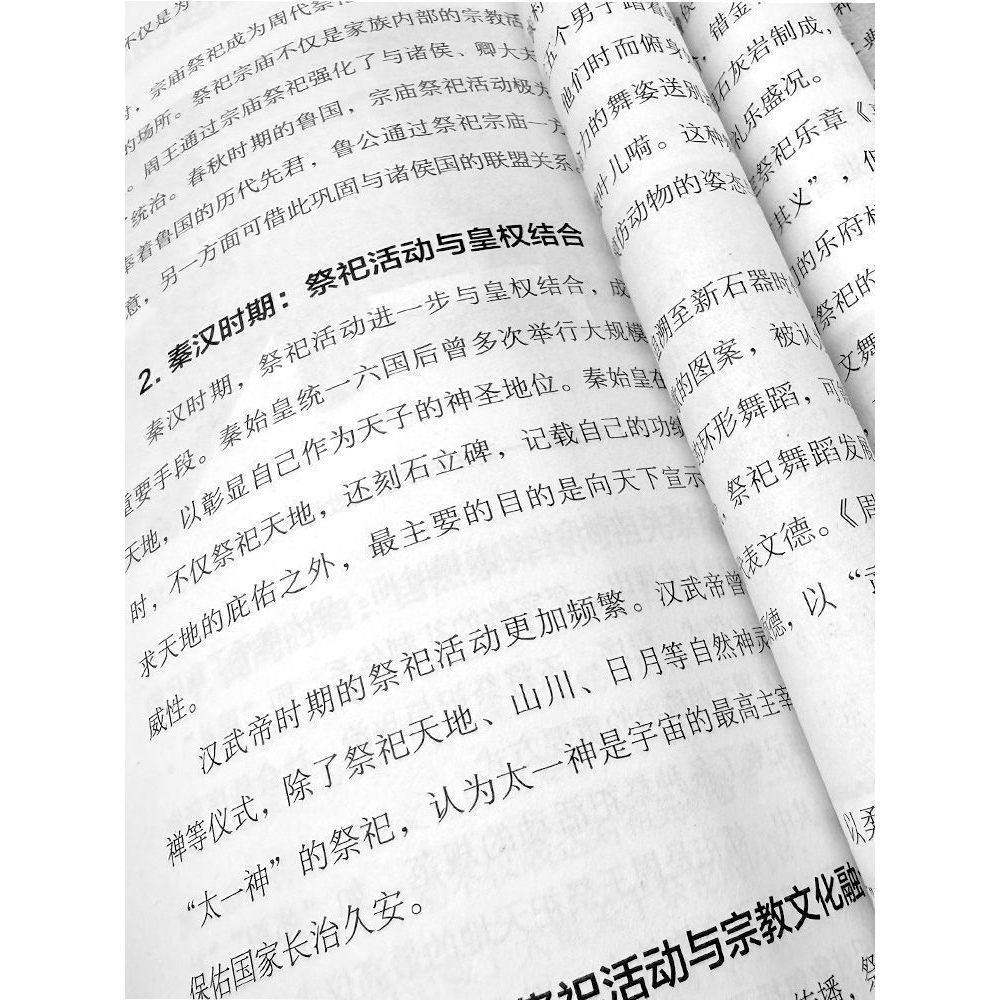 不仅是为
时，宗庙祭祀成为周代祭祀
的场所。祭祀宗庙不仅是家族内部的宗教活
。周王通过宗庙祭祀强化了与诸侯、卿大夫
统治。春秋时期的鲁国，宗庙祭祀活动极为
奉着鲁国的历代先君，鲁公通过祭祀宗庙一方
意，另一方面可借此巩固与诸侯国的联盟关系。
2. 秦汉时期：祭祀活动与皇权结合
秦汉时期，祭祀活动进一步与皇权结合，成
重要手段。秦始皇统一六国后曾多次举行大规模
天地，以彰显自己作为天子的神圣地位。秦始皇在
时，不仅祭祀天地，还刻石立碑，记载自己的功绩
求天地的庇佑之外，最主要的目的是向天下宣示
威性。
汉武帝时期的祭祀活动更加频繁。汉武帝曾
禅等仪式，除了祭祀天地、山川、日月等自然神灵
“太一神”的祭祀，认为太一神是宇宙的最高主宰
保佑国家长治久安。
祭祀活动与宗教文化融
五个男子踏着
他们时而俯身
力的舞姿送别
叶儿嗬。这种
仿动物的姿态
溯至新石器时
的图案，被认
环形舞蹈，可
祭祀舞蹈发展
表文德。《周
德，以“
以柔
传播，祭
错金
石灰岩制成，
礼乐盛况。
祭祀乐章《
其义”，但
的乐府机
祭祀的
文舞